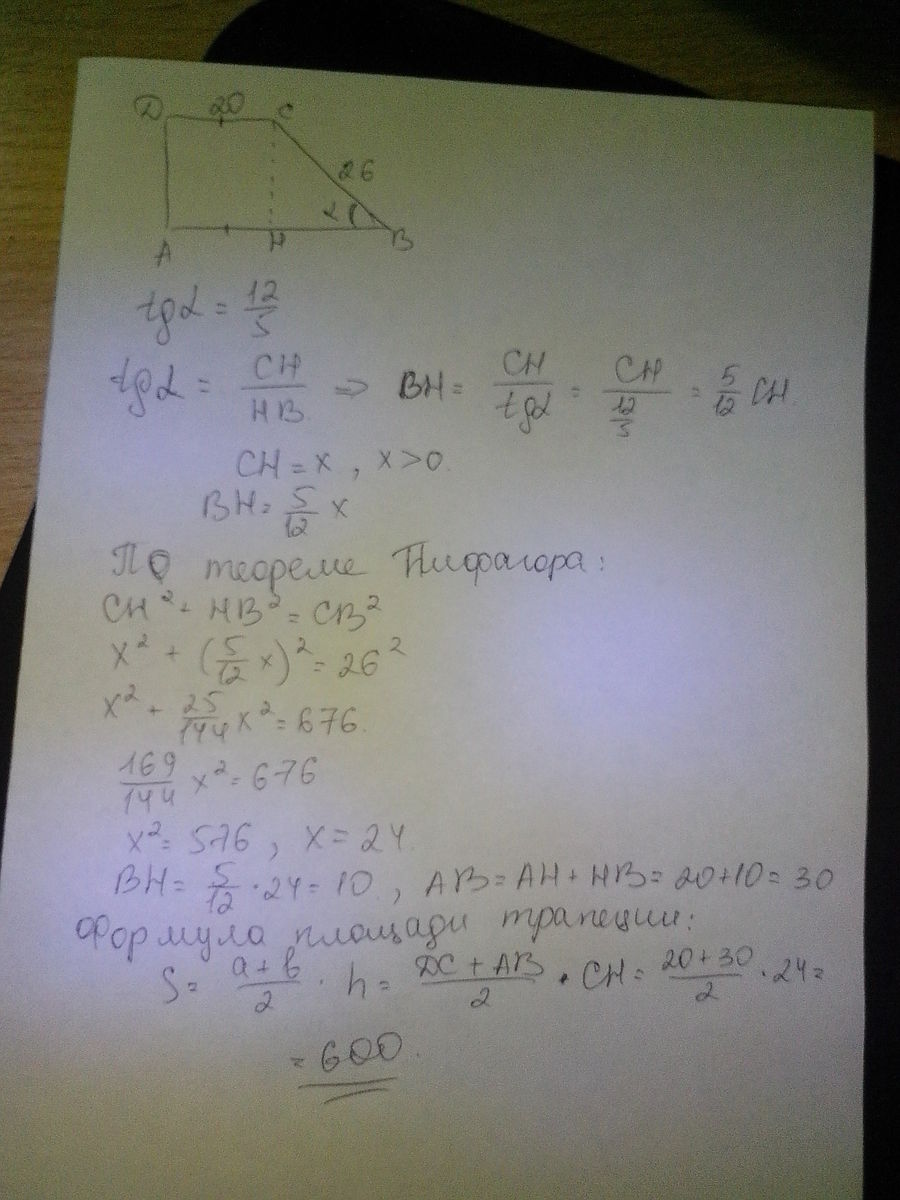 D 20 C
26
α
A H B
tgα = 12/5
tgα = CH/HB ⇒ BH = CH/tgα = CH/(12/5) = 5/12 CH.
CH = x, x>0.
BH = 5/12 x
По теореме Пифагора:
CH² + HB² = CB²
x² + (5/12 x)² = 26²
x² + 25/144 x² = 676.
169/144 x² = 676
x² = 576, x = 24.
BH = 5/12 · 24 = 10, AB = AH + HB = 20+10 = 30
Формула площади трапеции:
S = (a+b)/2 · h = (DC + AB)/2 · CH = (20+30)/2 · 24 =
= 600.